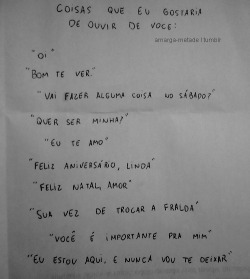 COISAS QUE EU GOSTARIA
DE OUVIR DE VOCÊ:
amarga-metade | tumblr
"OI"
"BOM TE VER."
"VAI FAZER ALGUMA COISA NO SÁBADO?"
"QUER SER MINHA?"
"EU TE AMO"
"FELIZ ANIVERSÁRIO, LINDA"
"FELIZ NATAL, AMOR"
"SUA VEZ DE TROCAR A FRALDA"
"VOCÊ É IMPORTANTE PRA MIM"
"EU ESTOU AQUI, E NUNCA VOU TE DEIXAR"